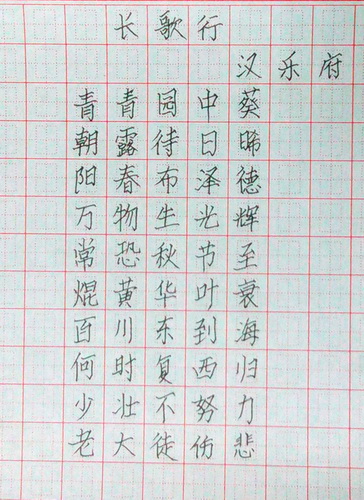 长歌行
汉乐府
青青园中葵
朝露待日晞
阳春布泽德
万物生光辉
常恐秋节至
焜黄华叶衰
百川东到海
何时复西归
少壮不努力
老大徒伤悲